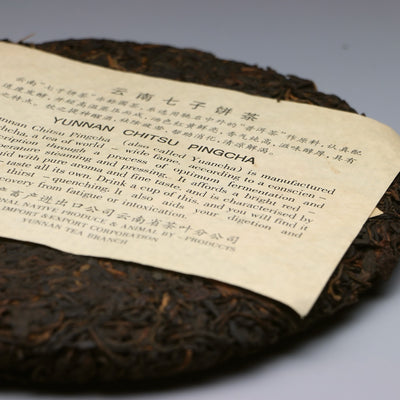 云南七子饼茶
云南“七子饼茶”亦称圆茶,系选用驰名中外的“普洱茶”作原料,认真配
适度发酵,并经高温蒸压而成,汤色红黄鲜亮,香气纯高,滋味醇厚,具有
之特点,饮之提神醒酒,祛除疲劳,帮助消化,清凉解渴。
YUNNAN CHITSU PINGCHA
Yunnan Chitsu Pingcha (also called Yuancha) is manufactured
a tea of world – wide fame, according to a conscien –
through a process of optimum fermentation and
steaming and pressing. It affords a bright red –
with pure aroma and fine taste, and is characterised by
taste all its own. Drink a cup of it and you will find it
thirst – quenching. It also aids your digestion and
recovery from fatigue or intoxication.
畜产进出口公司云南省茶叶分公司
NATIVE PRODUCE & ANIMAL BY – PRODUCTS
IMPORT &EXPORT CORPORATION
YUNNAN TEA BRANCH